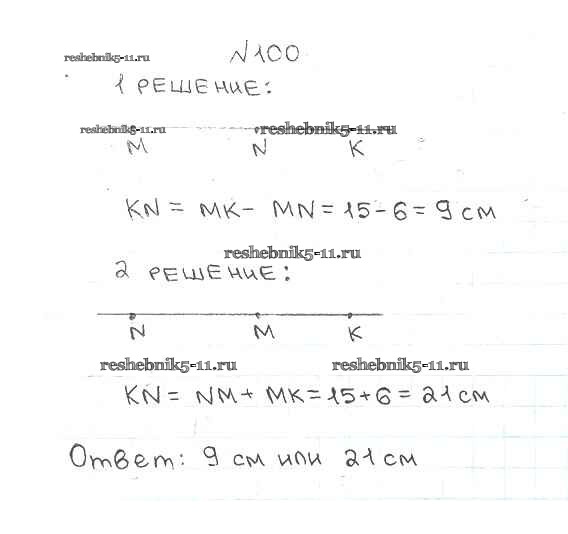 №100
reshebnik5-11.ru
1 РЕШЕНИЕ:
reshebnik5-11.ru reshebnik5-11.ru
M N K
KN = MK - MN = 15 - 6 = 9 см
reshebnik5-11.ru
2 РЕШЕНИЕ:
N M K
reshebnik5-11.ru reshebnik5-11.ru
KN = NM + MK = 15 + 6 = 21 см
Ответ: 9 см или 21 см